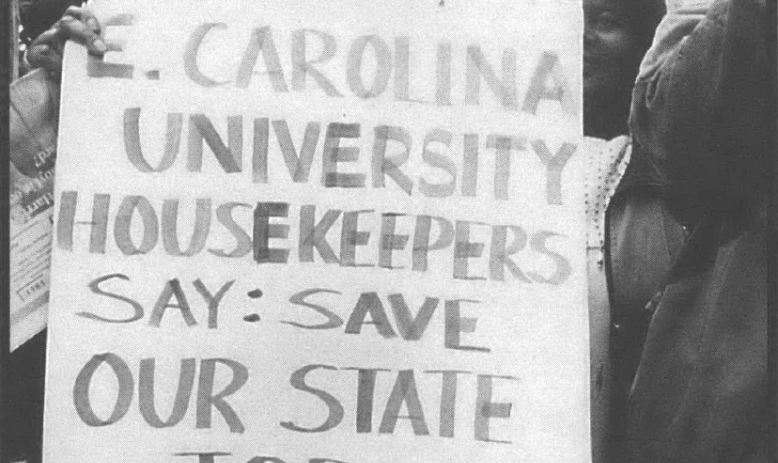 E. CAROLINA
UNIVERSITY
HOUSEKEEPERS
SAY: SAVE
OUR STATE